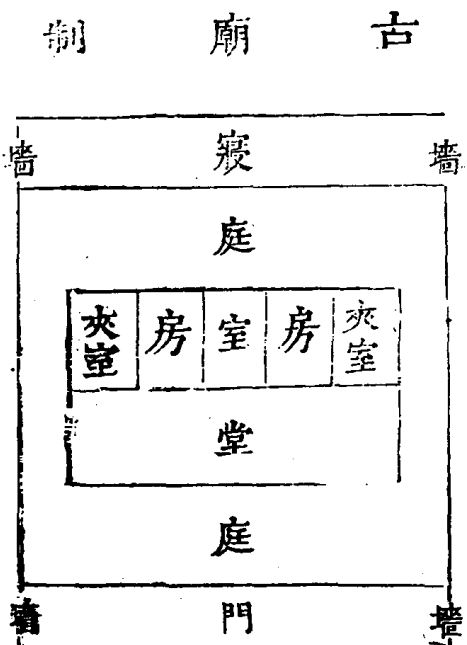 古廟制
墻 寢 墻
庭
夾室 房 室 房 夾室
堂
庭
墻 門 墻